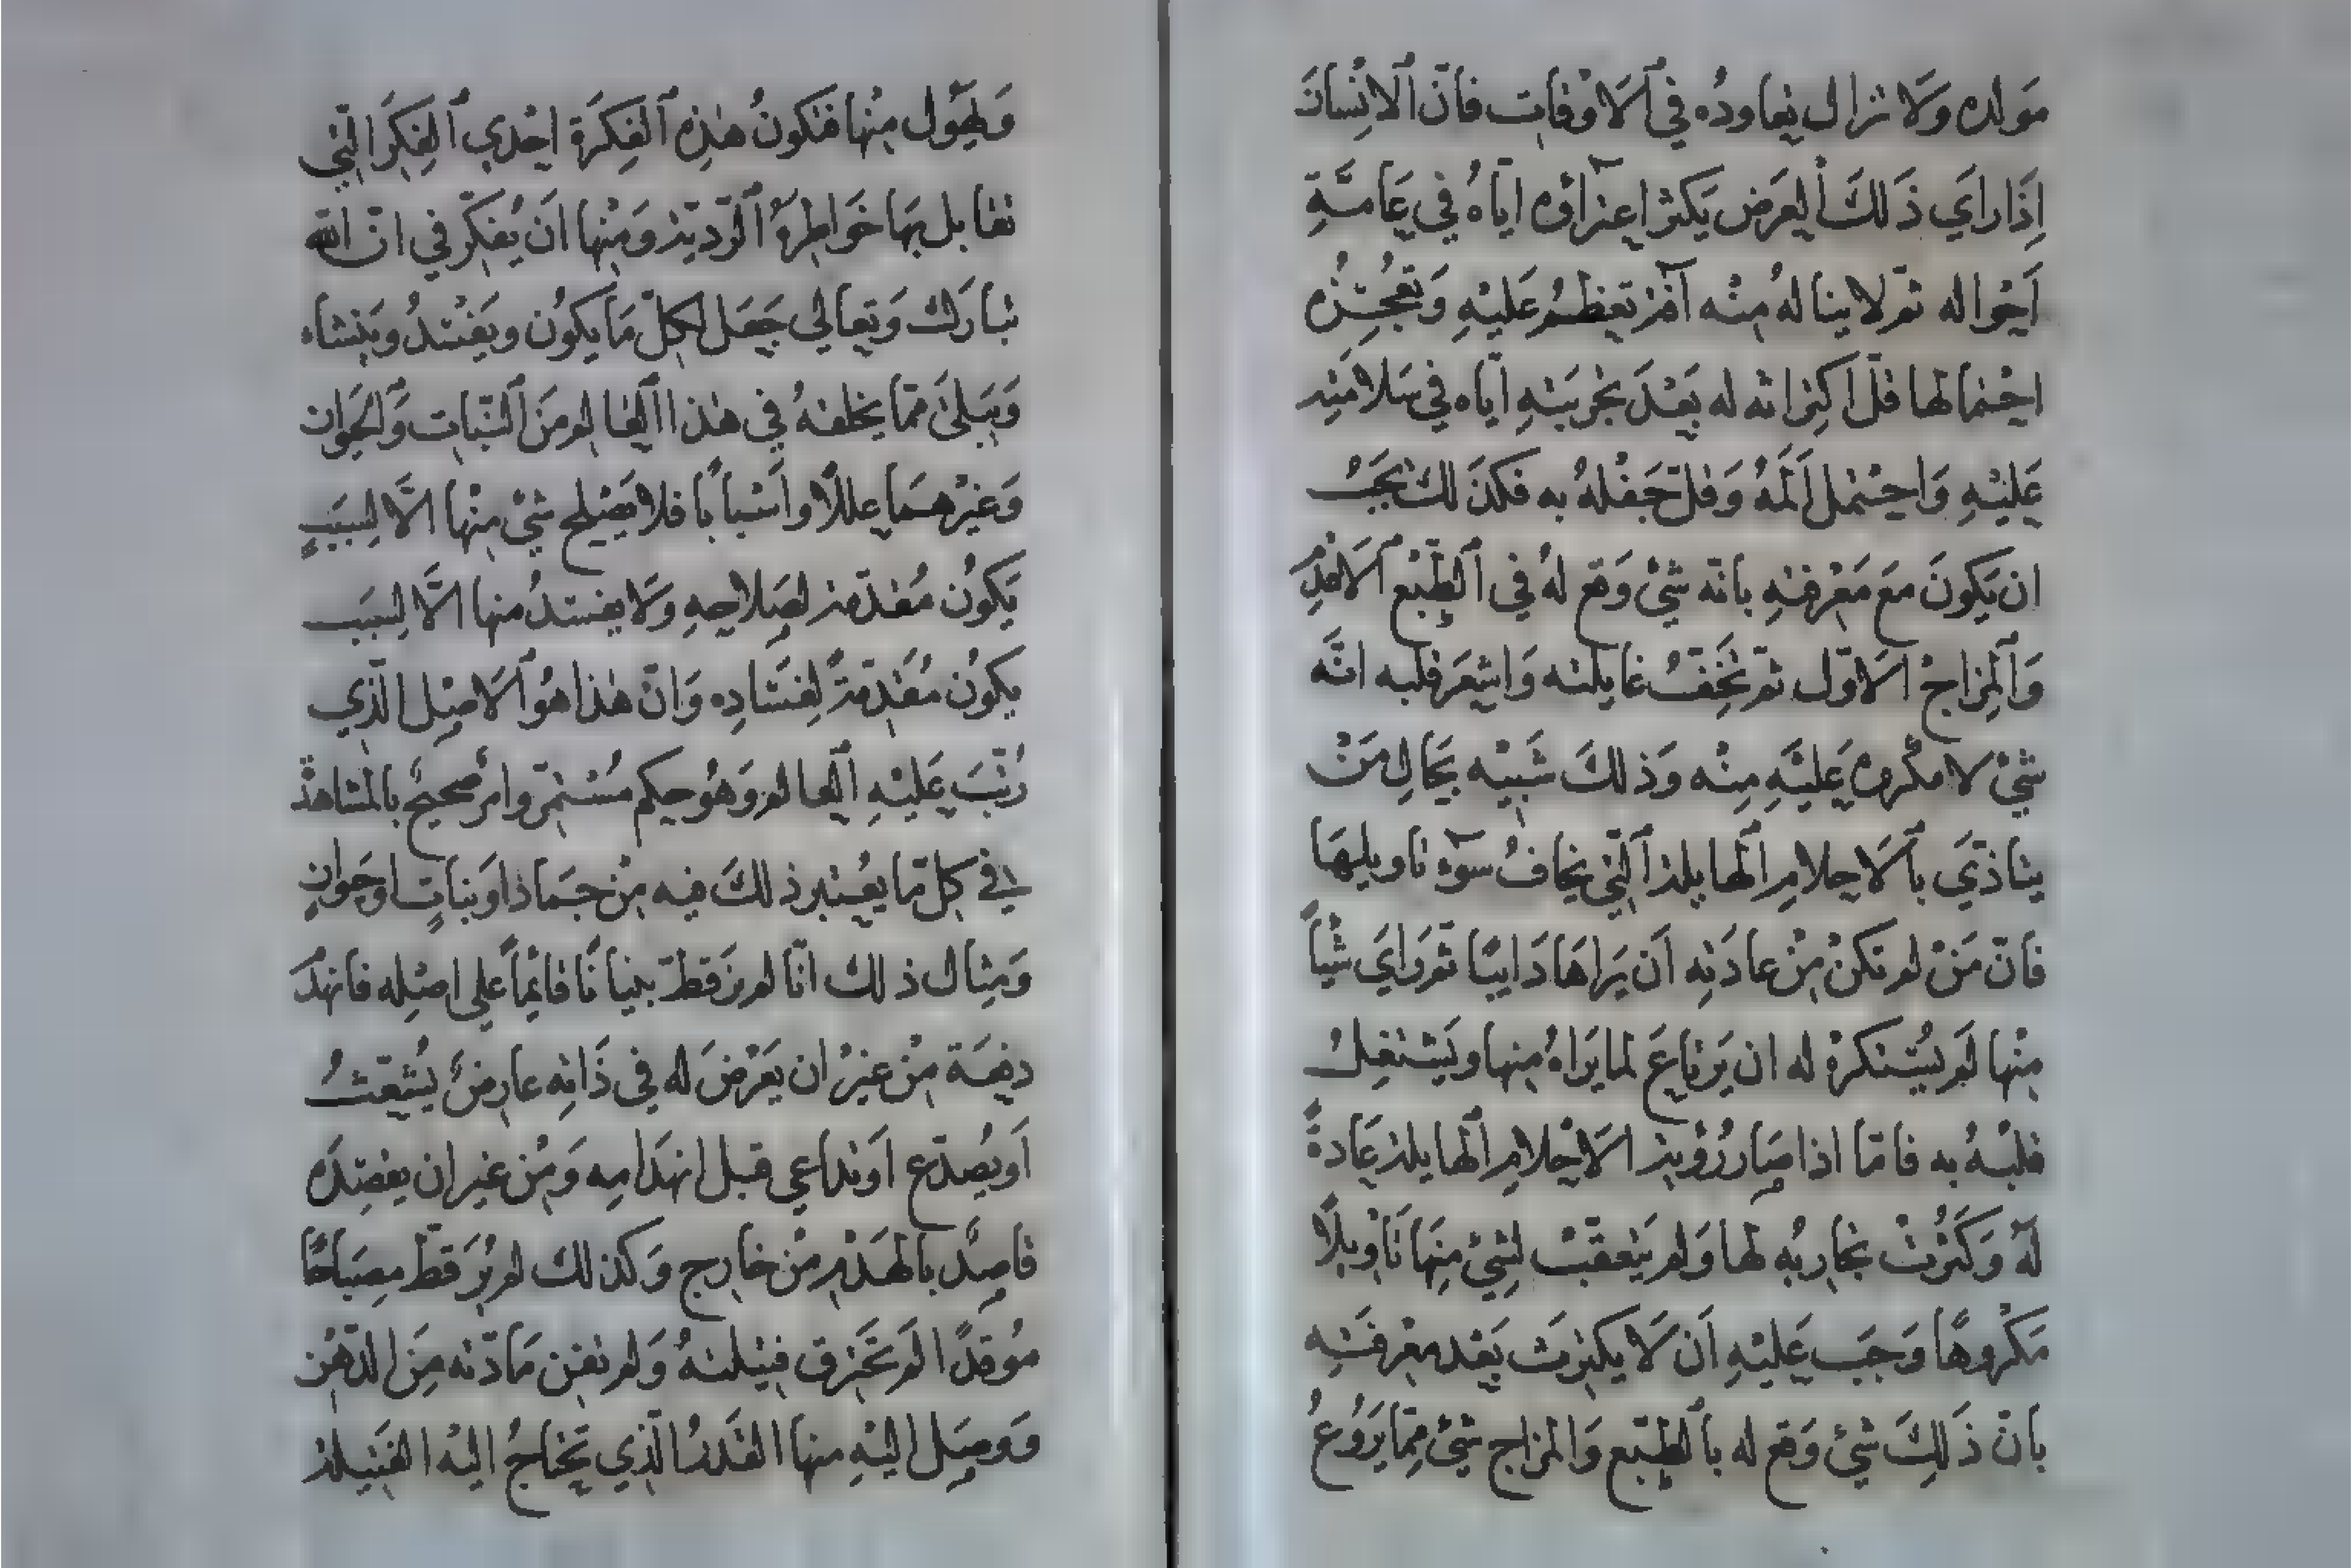 مَولده وَلا تزال تعاوده في الاوقات فانّ الانسان
اِذا رَاي ذَلكَ العرَض يَكثر اعتراؤه ايّاهُ في عَامّةِ
اَحْواله ثم لا يناله مِنْه آفة تعظم عَليْهِ وَتعجزه
احتمالها قلّ اكتراثه له بَعْدَ تجربَته ايّاه في سَلامته
عَليْهِ وَاحتمل اَلمهُ وَقلّ حَفْله به فكذلك يجَبُ
ان يَكونَ مَعَ مَعْرفته بانّه شئ وَقع لهُ في الطّبْع الاقدم
وَالمِزاج الاوّل ثم تخفّ غايلته وَاشعَر قلبه انّه
شئ لا مكروه عَليْهِ مِنْه وَذلكَ شَبيْه بحَالِ مَنْ
يتاذّي بالاحلام الهايلة التي يخافُ سوٓء تاويلهَا
فانّ مَنْ لم تكنْ مِنْ عادَته اَن يَرَاهَا دَايبًا ثم رَايَ شيْاً
مِنْها لَم يُسْتنكرْ له ان يَرتاعَ لما يَرَاهُ منها وَيَشتغل
قلبْهُ به فامّا اذا صَار رُؤية الاحْلام الهايلة عَادةً
لهٗ وَكثرتْ تجاربُه لها وَلم يَتعقّبْ لشئ مِنهَا تَاْويلًا
مَكرُوهًا وَجَب عَليْهِ اَن لَا يكترث بَعْد معْرفَته
بانّ ذَلِكَ شئ وَقع له بالطّبع وَالمزاج شئ مِمّا يَرُوعُ
وَيهَوّل مِنْها فتكونُ هٰذِه الفِكرَة احْدي الفِكَر التي
تقابل بهَا خَواطرهُ الرّديّة وَمِنْها اَن يُفكّر في انّ اللّه
تبارَك وَتعالي جَعَل لكلّ مَا يكوُن ويَفْسُدُ وَينشاء
وَيَبلىَ ممّا يخلقهُ في هٰذا العالم مِنَ النّبات وَالحَيوان
وَغيْرهمَا عللًا واَسْباباً فلا يَصْلح شئ مِنْها الَّا لِسَببٍ
يَكوُن مُقدّمة لصَلاحِهِ وَلا يفسدُ منها الَّا لسَبَب
يكوُن مُقَدّمةً لفسَادِه وَانّ هٰذا هُوَ الاصْل الّذي
رُتّبَ عَليْهِ العالم وَهُو حكم مُسْتمرّ وامر صحيح بالمشاهدة
في كلّ مَا يعْتبر ذلكَ فيه مِنْ جمَاد اوَ نباتٍ اوْ حَيوانٍ
وَمِثال ذلك انّا لم نرَ قطّ بنياناً قائماً علي اصْله فانهدّ
دفعَة مِنْ غيرْ ان يَعْرضَ له في ذَاتِه عارضٌ يُشعّثُ
اَو يُصدّع اَو تداعي قبل انهدَامِه وَمِنْ غير ان يقصِدَه
قاصِدٌ بالهَدْم مِنْ خارج وَكذلك لم يُرَ قطّ مِصبَاحًا
مُوقدًا لم تحَترق فتيلتهُ وَلم تفن مَادّته مِنَ الدّهْن
وَوصَل اليْهِ منها القَدرُ الّذي تحْتاجُ اليْه الفَتيلة